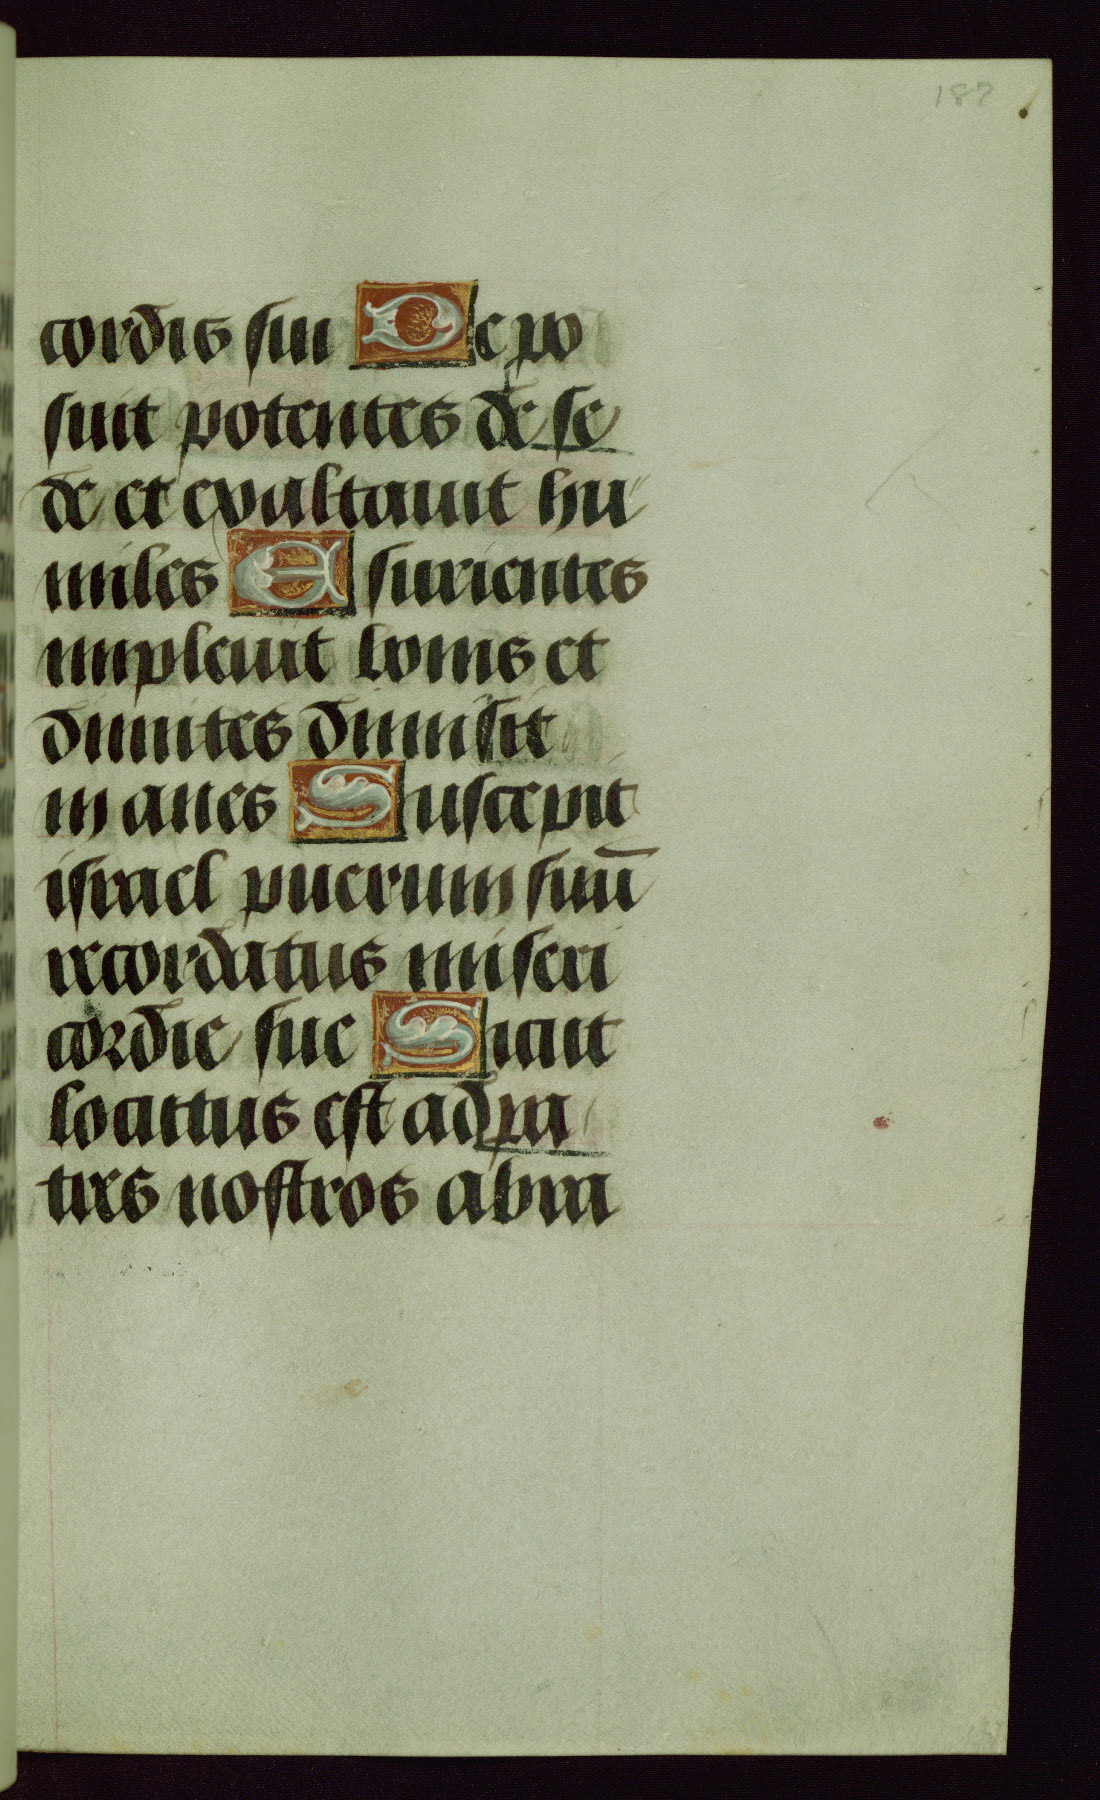 187
cordis sui De po
suit potentes de se
de et exaltauit hu
miles Esurientes
impleuit bonis et
diuites dimisit
inanes Suscepit
israel puerum suū
recordatus miseri
cordie sue Sicut
locutus est ad pa
tres nostros abra